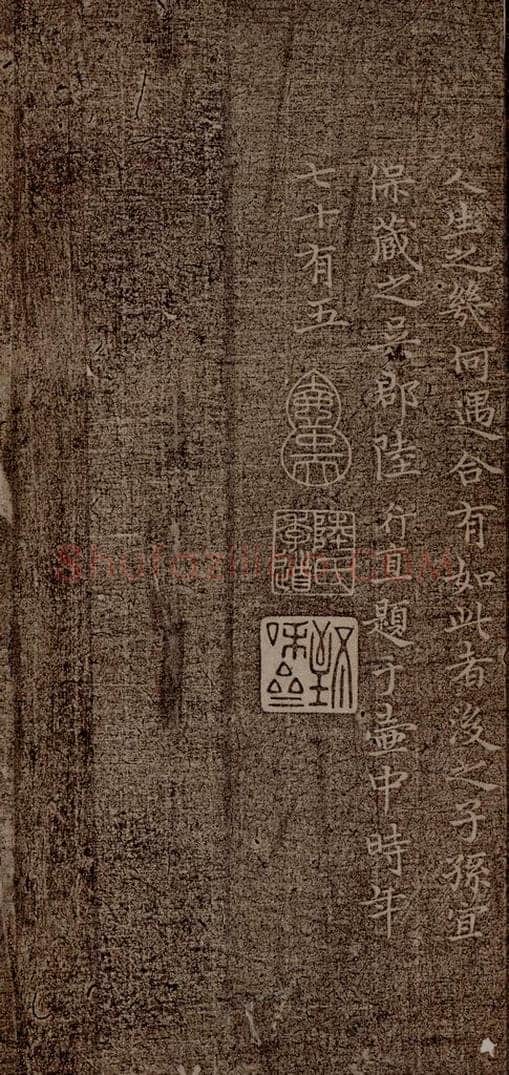 人生之幾何遇合有如此者後之子孫宜
保藏之吳郡陸行直題于壺中時年
七十有五
陸氏季道